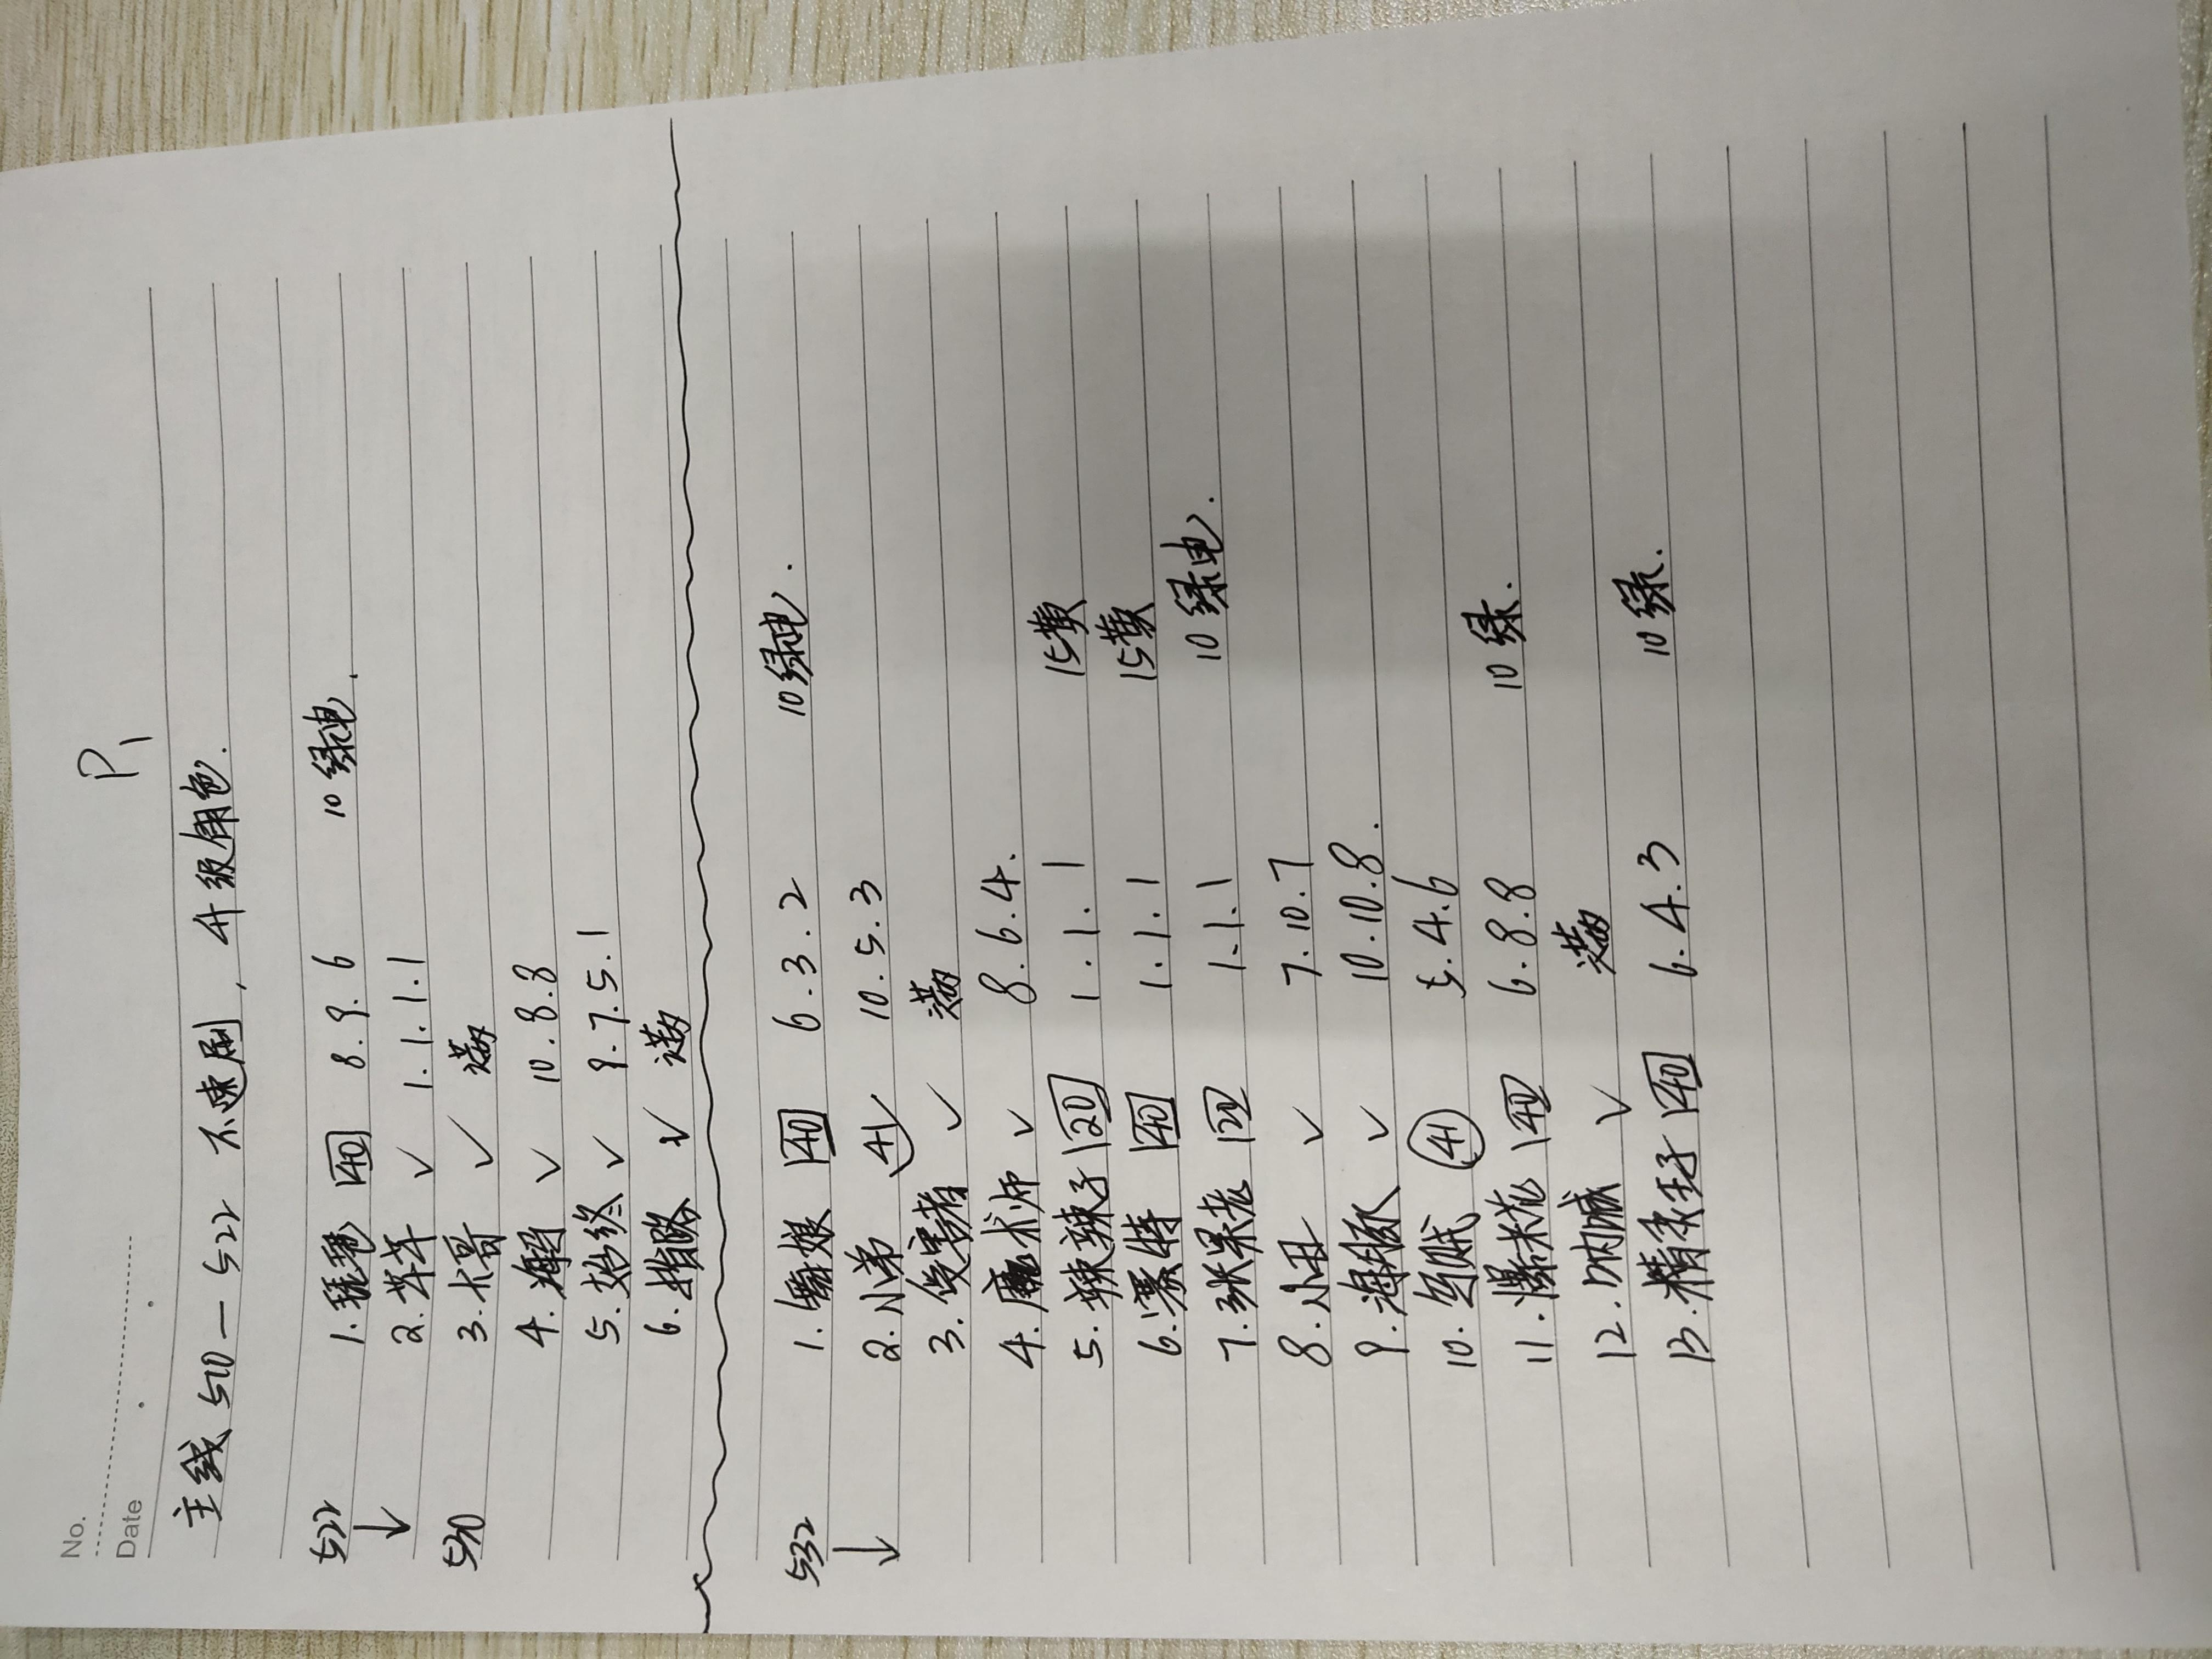 No.
Date
P1
主线 510 — 522 不速刷, 升级角色.
522 1. 琵琶 40 8. 9. 6 10 绿电.
↓ 2. 芊芊 ✓ 1. 1. 1. 1
530 3. 木哥 ✓ 满
4. ✓ 10. 8. 8
5. 始终 ✓ 9. 7. 5. 1
6. 指路 ✓ 满
532 1. 舞娘 40 6. 3. 2 10 绿电.
↓ 2. 小弟 41 10. 5. 3
3. 受害者 ✓ 满
4. 魔术师 ✓ 8. 6. 4.
5. 辣辣子 20 1. 1. 1 15黄
6. 赛特 40 1. 1. 1 15黄
7. 张果老 20 1. 1. 1 10 绿电.
8. 小丑 ✓ 7. 10. 7
9. 海豚 ✓ 10. 10. 8.
10. 乌贼 41 5. 4. 6
11. 爆米花 40 6. 8. 8 10 绿.
12. 呐喊 ✓ 满
13. 精灵王子 40 6. 4. 3 10 绿.